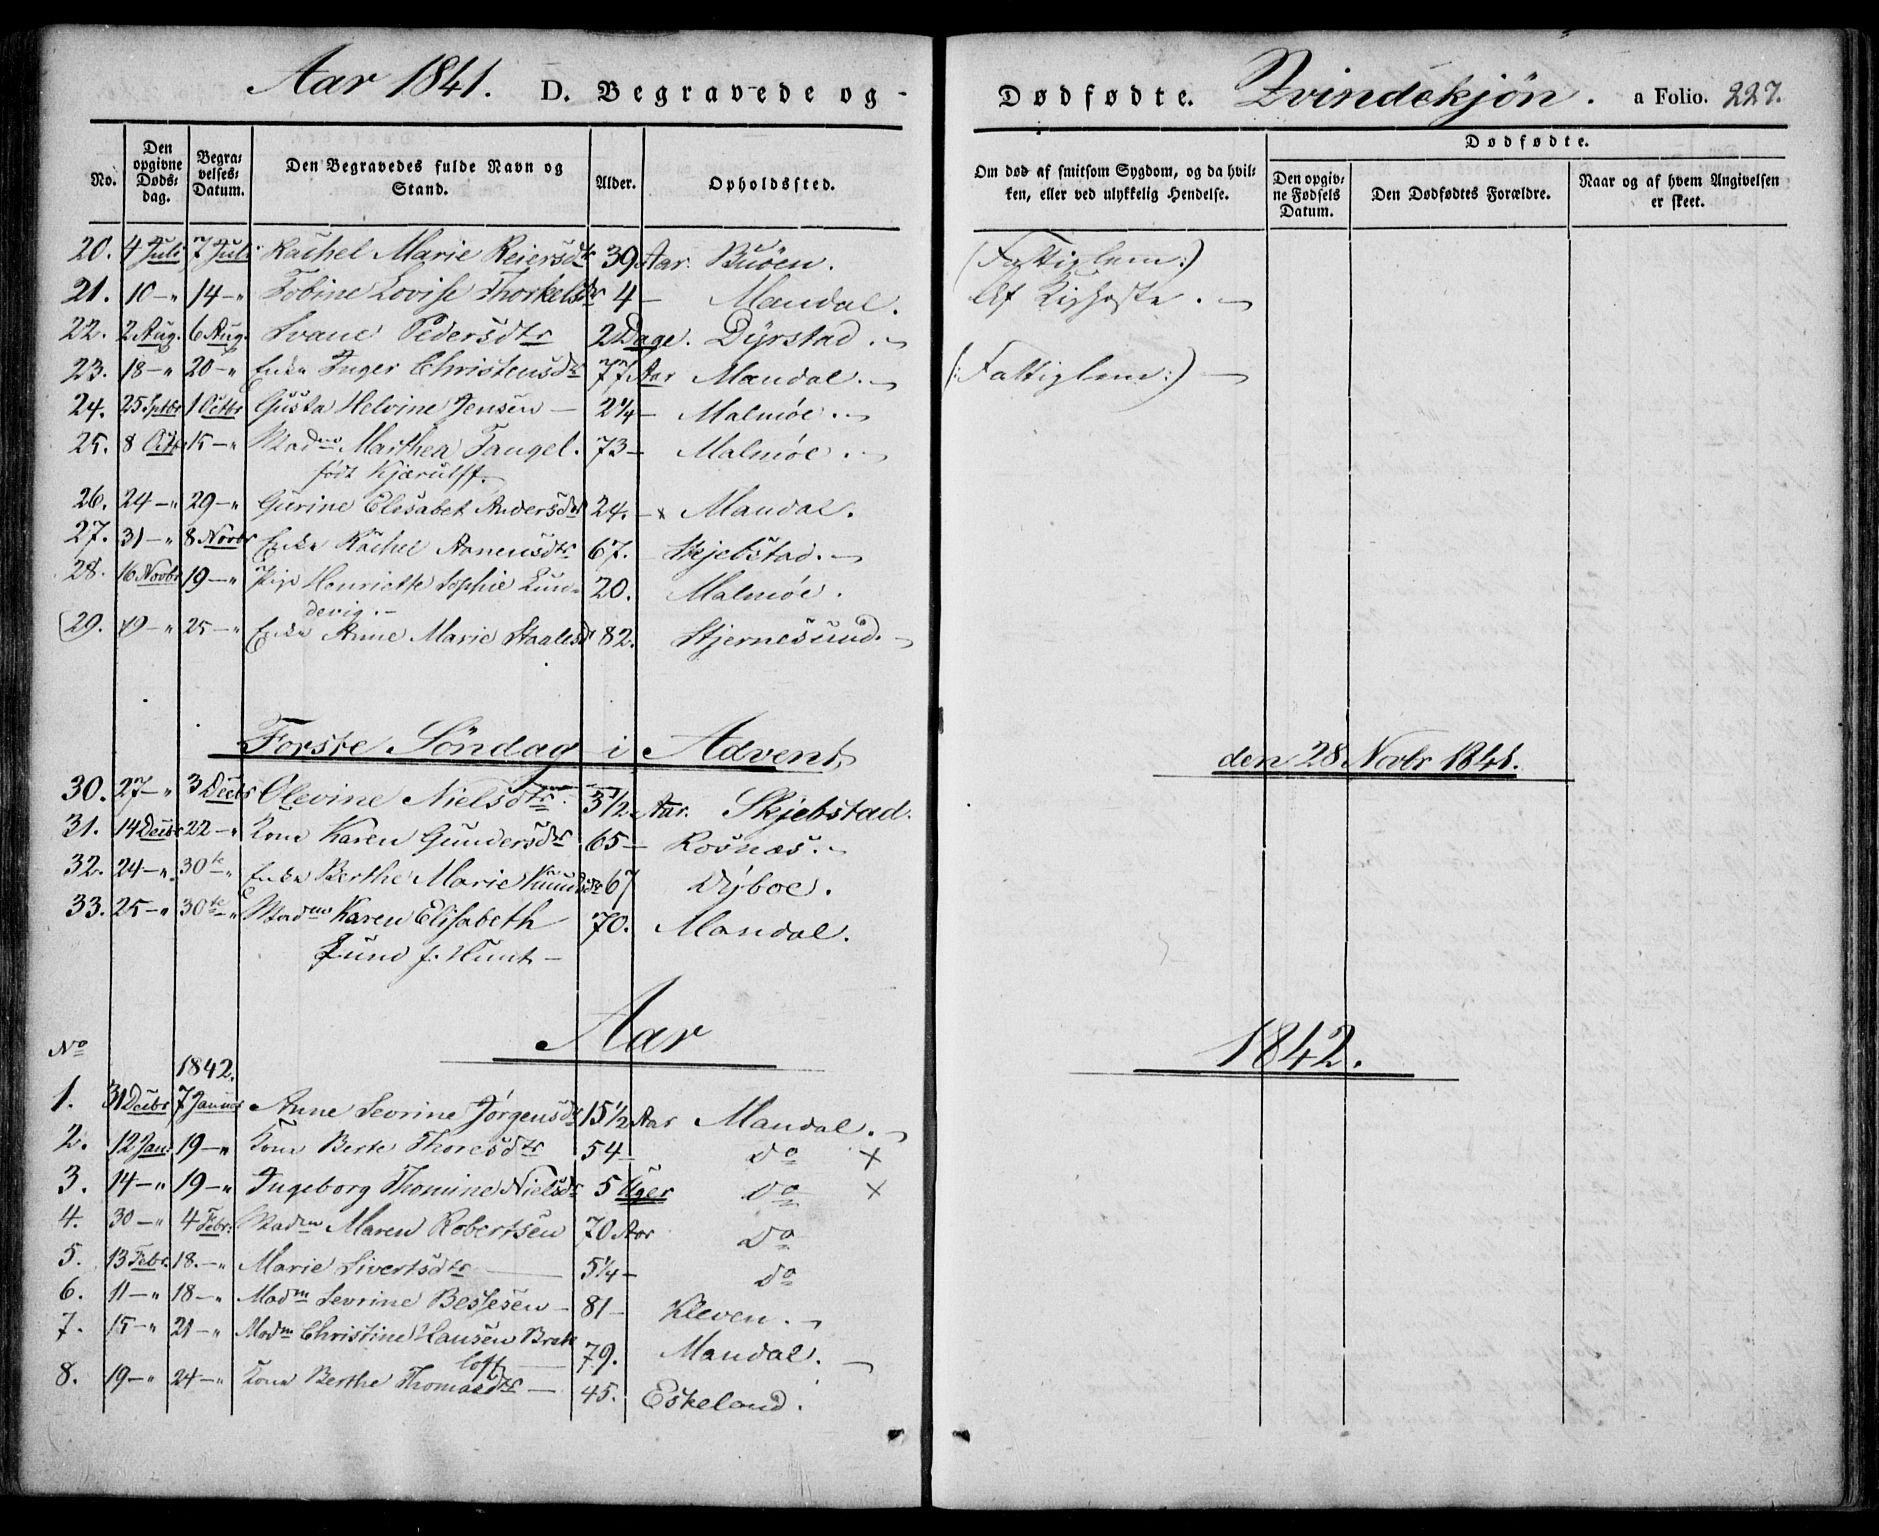 Aar 1841. D. Begravede og Dødfødte. Qvindekjön. a Folio. 227.
No. Den opgivne Døds-dag. Begra-velses-Datum. Den Begravedes fulde Navn og Stand. Alder. Opholdssted. Om død af smitsom Sygdom, og da hvil-ken, eller ved ulykkelig Hendelse. Dødfødte. Den opgiv-ne Fødsels Datum. Den Dødfødtes Forældre. Naar og af hvem Angivelsen er skeet.
20. 4 Juli 7 Juli Rachel Marie Reiersdtr 39 Aar. Buöen. (Fattiglem:)
21. 10 — " 14 — " Tobine Lovise Thorkelsdtr 4 — Mandal. Af Kighoste. —
22. 2 Aug. 6 Aug. Svane Pedersdtr 2 Dage. Dyrstad. —
23. 18 — " 20 — " Enke Inger Christensdtr 77 Aar Mandal. — (:Fattiglem:) —
24. 25 Sptbr 1 Octbr Gusta Helvine Jensen — 2¼ — Malmöe. —
25. 8 Octb 15 — " Madme Marthea Tangel. 73 — Malmöe. —
födt Kjærulff.
26. 24 — " 29 — " Gurine Elisabet Andersdtr 24. — x Mandal.
27. 31 — " 8 Novbr Enke Rachel Aanensdtr 67. Skjebstad. —
28. 16 Novbr 19 — " Pige Henriette Sophie Lun- 20. Malmöe.
devig. —
29. 19 — " 25 — " Enke Anne Marie Staalesd 82. Stjernesund. —
Forste Söndag i Advent den 28 Novbr 1841.
30. 27 — " 3 Decbr Olevine Nielsdtr. 3½ Aar. Skjebstad.
31. 14 Decbr 22 — " Kone Karen Gundersdtr 65 — Rosnæs. —
32. 24 — " 30te " Enke Berthe Marie Knudsdtr 67 Dyboe.
33. 25 — " 30te — " Madme Karen Elisabeth 70. Mandal.
Lund f. Hunt —
Aar 1842.
No
1842.
1. 31 Decbr 7 Januar Anne Sevrine Jørgensdtr 15½ Aar Mandal. —
2. 12 Jan 19 — " Kone Berte Thoresdtr 54 — do x
3. 14 — " 19 — " Ingeborg Thomine Nielsdtr 5 Uger do x
4. 30 — " 4 Febr. Madm Maren Robertsen 70 Aar do
5. 13 Febr. 18. — " Marie Sivertsdtr — 5¼ — do
6. 11 — " 18 — " Madm Sevrine Bessesen — 81 — Kleven. —
7. 15 — " 21 — " Madm Christine Hansen Brek 79. Mandal. —
loft —
8. 19 — " 24 — " Kone Berthe Thomasdtr — 45. Eskeland.